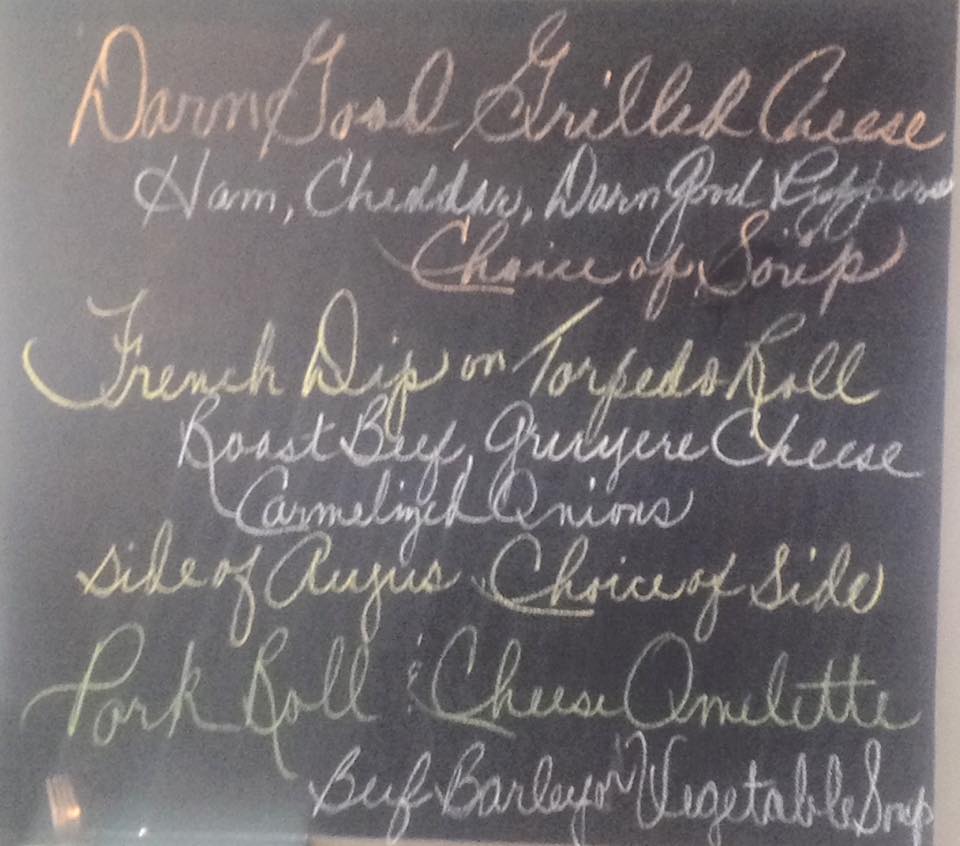 Darn Good Grilled Cheese
Ham, Cheddar, Darn Good Peppers
Choice of Soup
French Dip on Torpedo Roll
Roast Beef, Gruyere Cheese
Carmelized Onions
side of Aujus Choice of Side
Pork Roll & Cheese Omelette
Beef Barley or Vegetable Soup